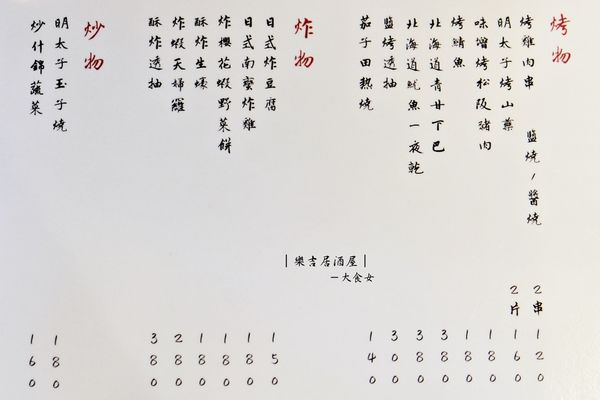 烤物
烤雞肉串 鹽燒/醬燒 2串 120
明太子烤山藥 2片 160
味增烤松阪豬肉 180
烤鯖魚 180
北海道青甘下巴 380
北海道魷魚一夜乾 380
鹽烤透抽 300
茄子田熱燒 140
炸物
日式炸豆腐 150
日式南蠻炸雞 180
炸櫻花蝦野菜餅 180
酥炸生蠔 180
炸蝦天婦羅 280
酥炸透抽 380
炒物
明太子玉子燒 180
炒什錦蔬菜 160
|樂吉居酒屋|
－大食女